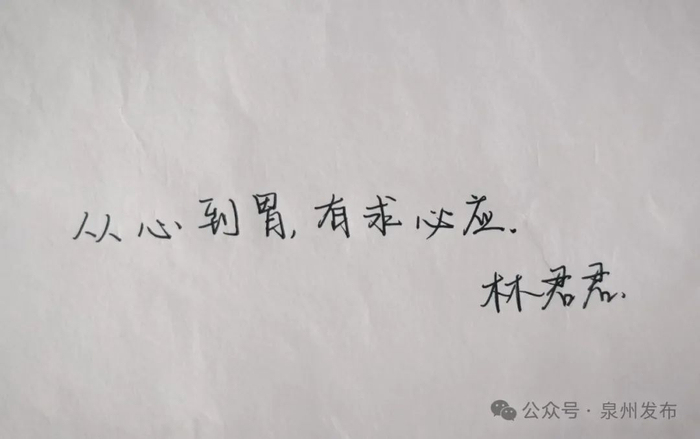 从心到胃,有求必应.
林君君.
公众号·泉州发布